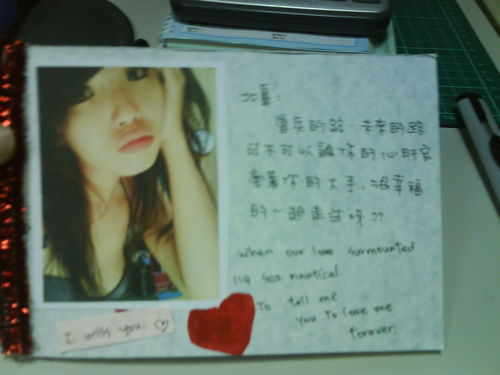 北鼻:
當兵的話,未來的路
可不可以讓你的心肝寶
牽著你的大手,很幸福
的一起走過呀??
when our love surmounted
114 sea nautical.
To tell me
you To love me
forever.
I miss you.